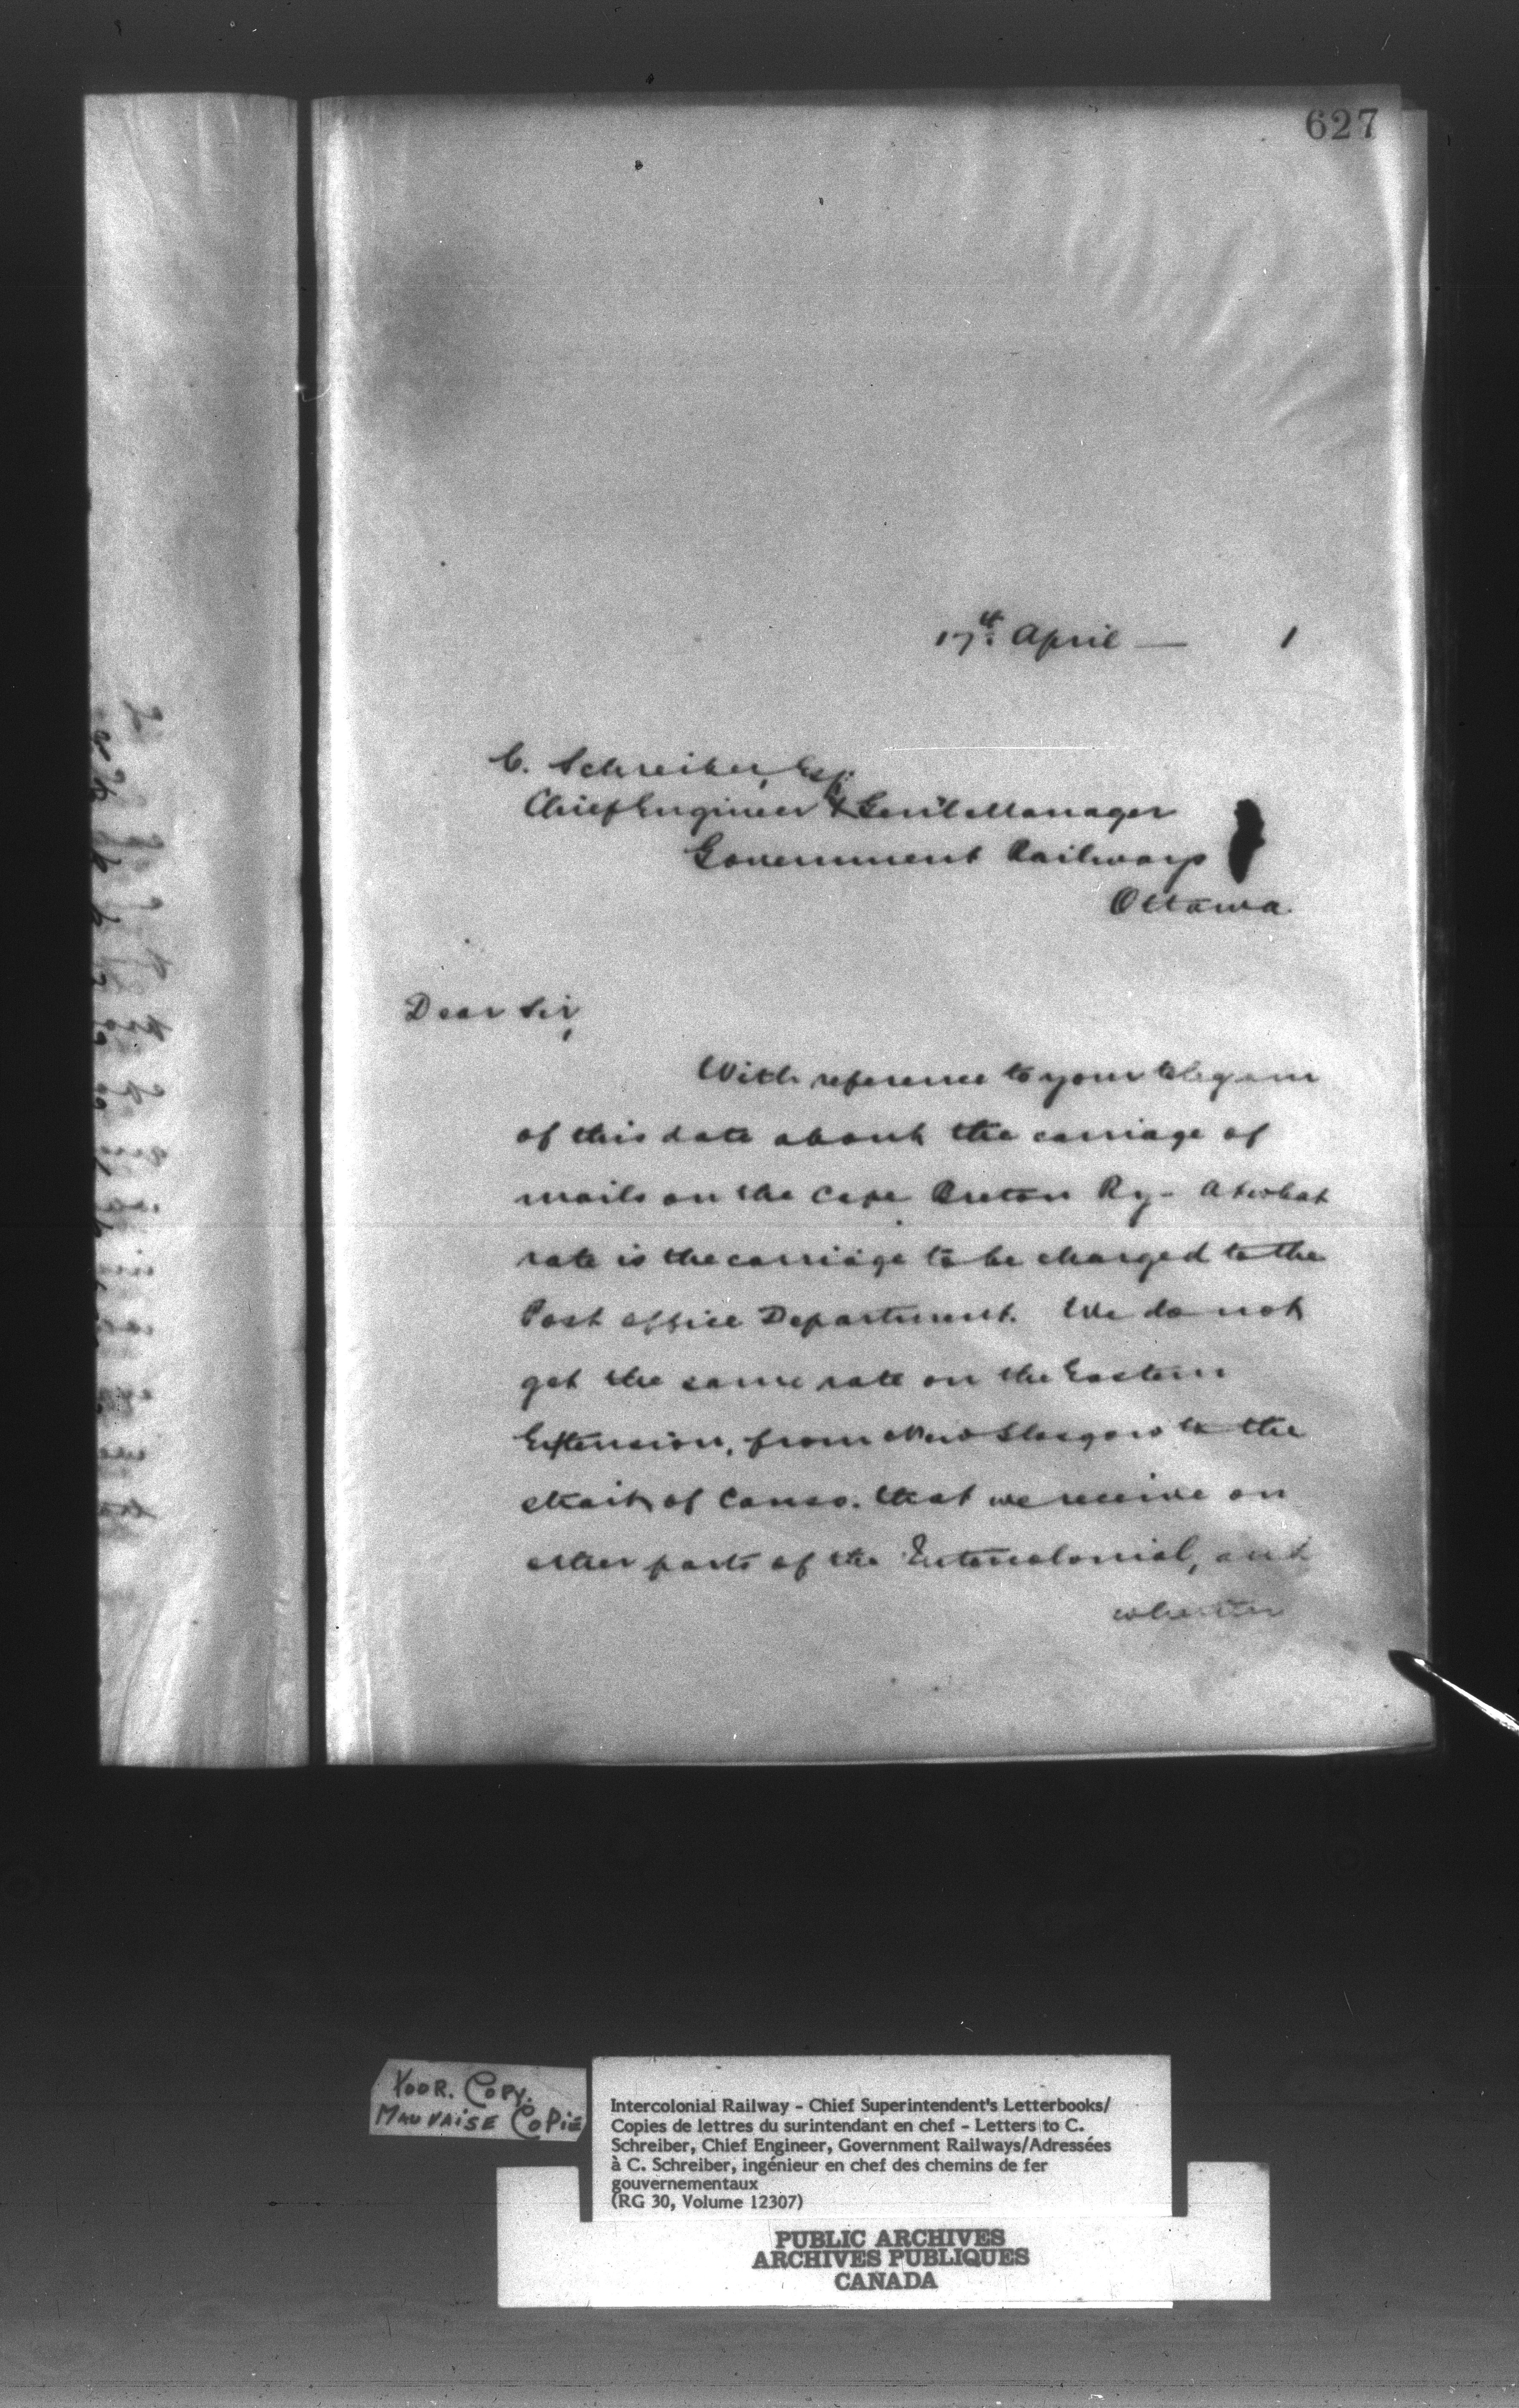 627
17th April — 1
C. Schreiber, Esq.
Chief Engineer & Gen'l Manager
Government Railways
Ottawa
Dear Sir,
With reference to your telegram
of this date about the carriage of
mails on the Cape Breton Ry - At what
rate is the carriage to be charged to the
Post Office Department. We do not
get the same rate on the Eastern
Extension, from New Glasgow to the
strait of Canso, that we receive on
other parts of the Intercolonial, and
whether
POOR. COPY.
MAUVAISE COPIE
Intercolonial Railway - Chief Superintendent's Letterbooks/
Copies de lettres du surintendant en chef - Letters to C.
Schreiber, Chief Engineer, Government Railways/Adressées
à C. Schreiber, ingénieur en chef des chemins de fer
gouvernementaux
(RG 30, Volume 12307)
PUBLIC ARCHIVES
ARCHIVES PUBLIQUES
CANADA